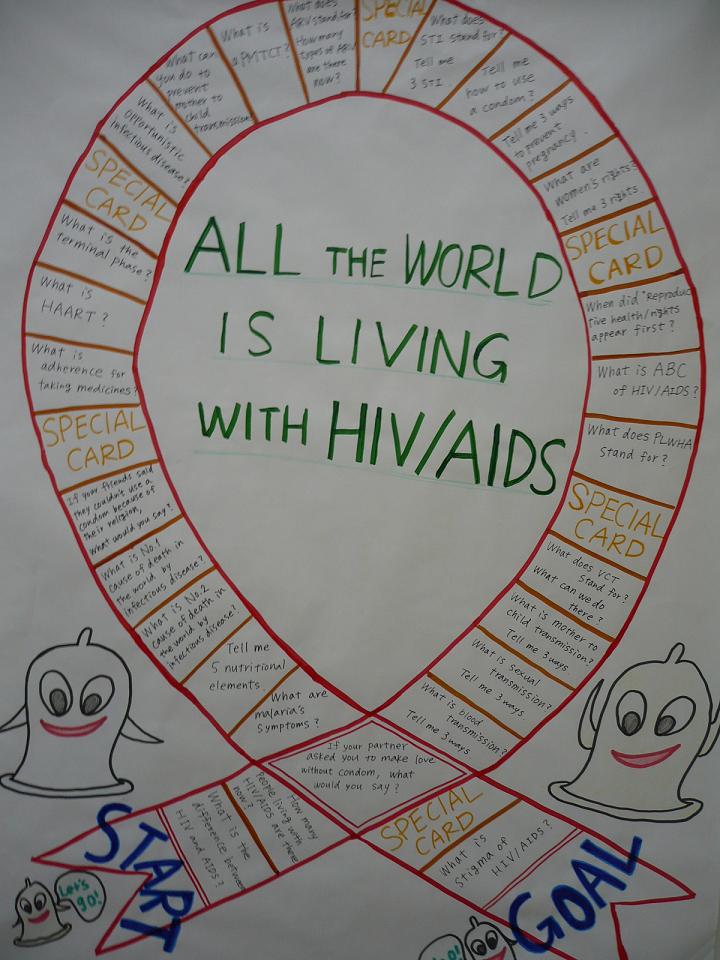 ALL THE WORLD
IS LIVING
WITH HIV/AIDS
START
Let's
go!
What is the
difference between
HIV and AIDS?
How many
people living with
HIV/AIDS are there
now?
If your partner
asked you to make love
without condom, what
would you say?
What is blood
transmission?
Tell me 3 ways
What is sexual
transmission?
Tell me 3 ways
What is mother to
child transmission?
Tell me 3 ways
What does VCT
stand for?
What can we do
there?
SPECIAL
CARD
What does PLWHA
stand for?
What is ABC
of HIV/AIDS?
When did "Reproduc
tive health/rights
appear first?
SPECIAL
CARD
What are
women's rights?
Tell me 3 rights
Tell me 3 ways
to prevent
pregnancy.
Tell me
how to use
a condom?
What does
STI stand for?
Tell me
3 STI.
SPECIAL
CARD
What does
ARV stand for?
How many
types of ARV
are there
now?
What is
a PMTCT?
What can
you do to
prevent
mother to
child
transmission
What is
opportunistic
infectious disease?
SPECIAL
CARD
What is the
terminal phase?
What is
HAART?
What is
adherence for
taking medicines?
SPECIAL
CARD
If your friends said
they couldn't use a
condom because of
their religion,
what would you say?
What is No.1
cause of death in
the world by
infectious disease?
What is No.2
cause of death in
the world by
infectious disease?
Tell me
5 nutritional
elements.
What are
malaria's
symptoms?
SPECIAL
CARD
What is
Stigma of
HIV/AIDS?
GOAL